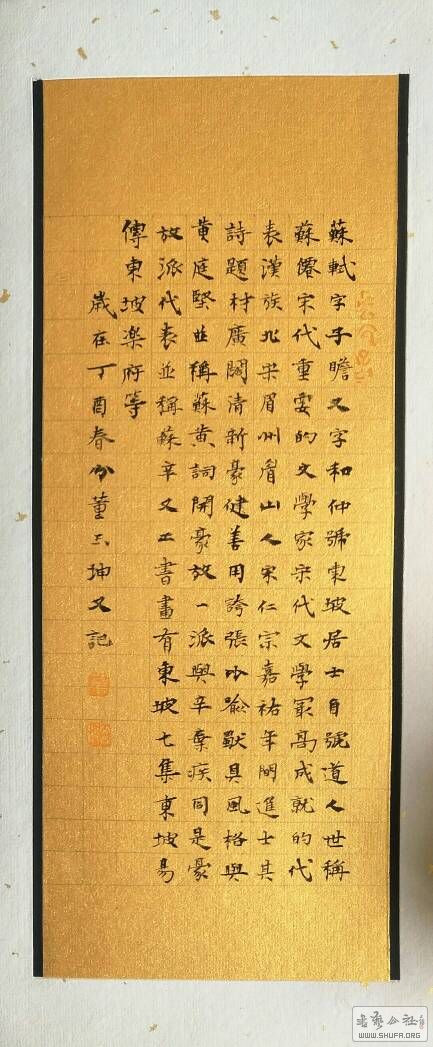 蘇軾字子瞻又字和仲號東坡居士自號道人世稱
蘇僊宋代重要的文學家宋代文學冣高成就的代
表漢族北宋眉州眉山人宋仁宗嘉祐年間進士其
詩題材廣闊清新豪健善用誇張比喻獸具風格與
黄庭堅並稱蘇黄詞開豪放一派與辛棄疾同是豪
放派代表並稱蘇辛又工書畫有東坡七集東坡易
傳東坡樂府等
歲在丁酉春分董玉坤又記
書藝公社
WWW.SHUFA.ORG